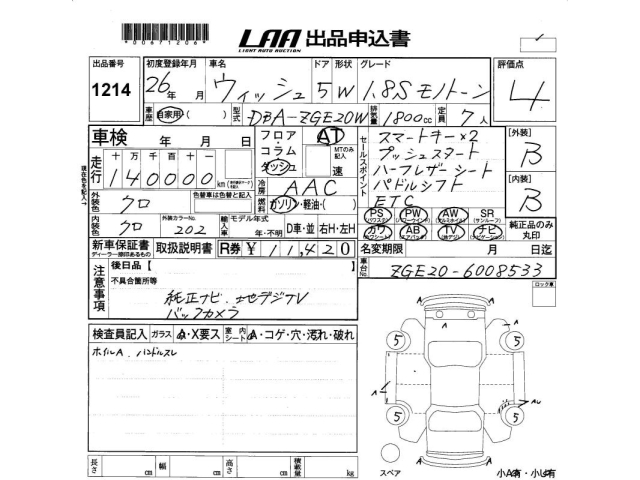 *00671206*
LAA 出品申込書
LIGHT AUTO AUCTION
出品番号 初度登録年月 車名 ドア 形状 グレード 評価点
1214 26年 月 ウィッシュ 5 W 1.8S モノトーン 4
車歴 自家用( ) 型式 DBA-ZGE20W 排気量 1800cc 定員 7人
車検 年 月 日
フロア・コラム ダッシュ AT MTのみ記入 速
セールスポイント
スマートキー×2
プッシュスタート
ハーフレザーシート
パドルシフト
ETC
[外装] B
[内装] B
走行 十 万 千 百 十 一
140000 km
冷房 AAC
外装色 クロ 色替車は色替と記入
燃料 ガソリン・軽油・( )
内装色 クロ 外装カラーNo. 202
輸入車 モデル年式 年・不明 D車・並 右H・左H
PS (パワステ) PW (パワーウインド) AW (アルミホイル) SR (サンルーフ)
カワ AB (エアバック) TV (地デジ) ナビ (ナビゲーション)
純正品のみ丸印
新車保証書 取扱説明書 R券 ¥11,420
名変期限 月 日迄
車台No. ZGE20-6008533
注意事項
後日品【 】
不具合箇所等
純正ナビ、地デジTV
バックカメラ
ロック車
検査員記入 ガラス A・X要ス 室内シート A・コゲ・穴・汚れ・破れ
ホイルA、ハンドルスレ
A
5 5
A A
5 5
A
スペア
小A有・小U有
長さ cm 幅 cm 高さ cm 積載量 kg